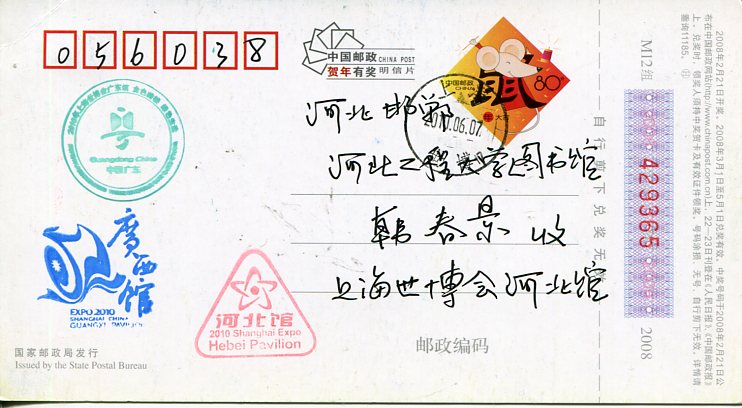 056038
中国邮政 CHINA POST
贺年有奖 明信片
中国邮政
CHINA
80分
鼠
2010.06.07
河北邯郸
河北工程大学图书馆
韩春景 收
上海世博会河北馆
邮政编码
Guangdong China
中国广东
廣西館
EXPO 2010
SHANGHAI CHINA
GUANGXI PAVILION
河北馆
2010 Shanghai Expo
Hebei Pavilion
国家邮政局发行
Issued by the State Postal Bureau
自行剪下兑奖无效
M12组
429365
2008
2008年2月21日开奖。2008年3月1日至5月1日兑奖有效。中奖号码于2008年2月21日公
布在中国邮政网站(http://www.chinapost.com.cn)上，22—23日刊登在《人民日报》、《中国邮政报》
上。兑奖时，领奖人须持中奖贺卡及有效证件领奖，号码涂损、无号、自行剪下无效，详情请
垂询11185。